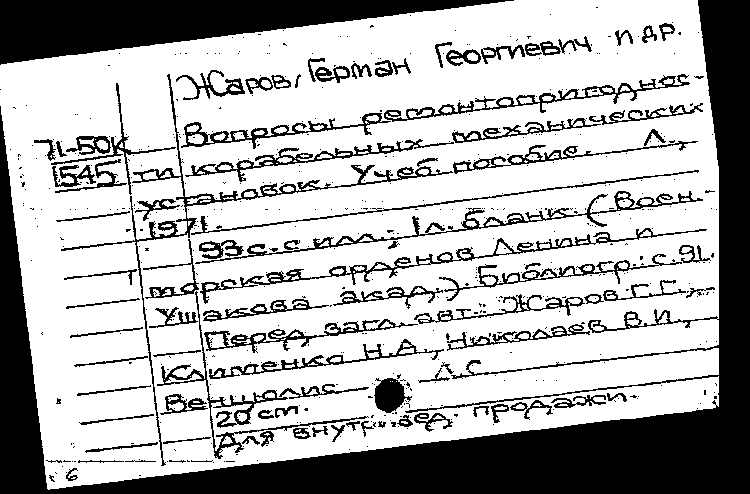 Жаров, Герман Георгиевич и др.
71-50К
1545
Вопросы ремонтопригоднос-
ти корабельных механических
установок. Учеб. пособие. Л.,
1971.
93 с. с илл.; 1 л. бланк. (Воен.-
морская орденов Ленина и
Ушакова акад.). Библиогр.: с. 91.
Перед загл. авт.: Жаров Г.Г.,
Клименко Н.А., Николаев В.И.,
Венцюлис Л.С.
20 см.
Для внутривед. продажи.
6